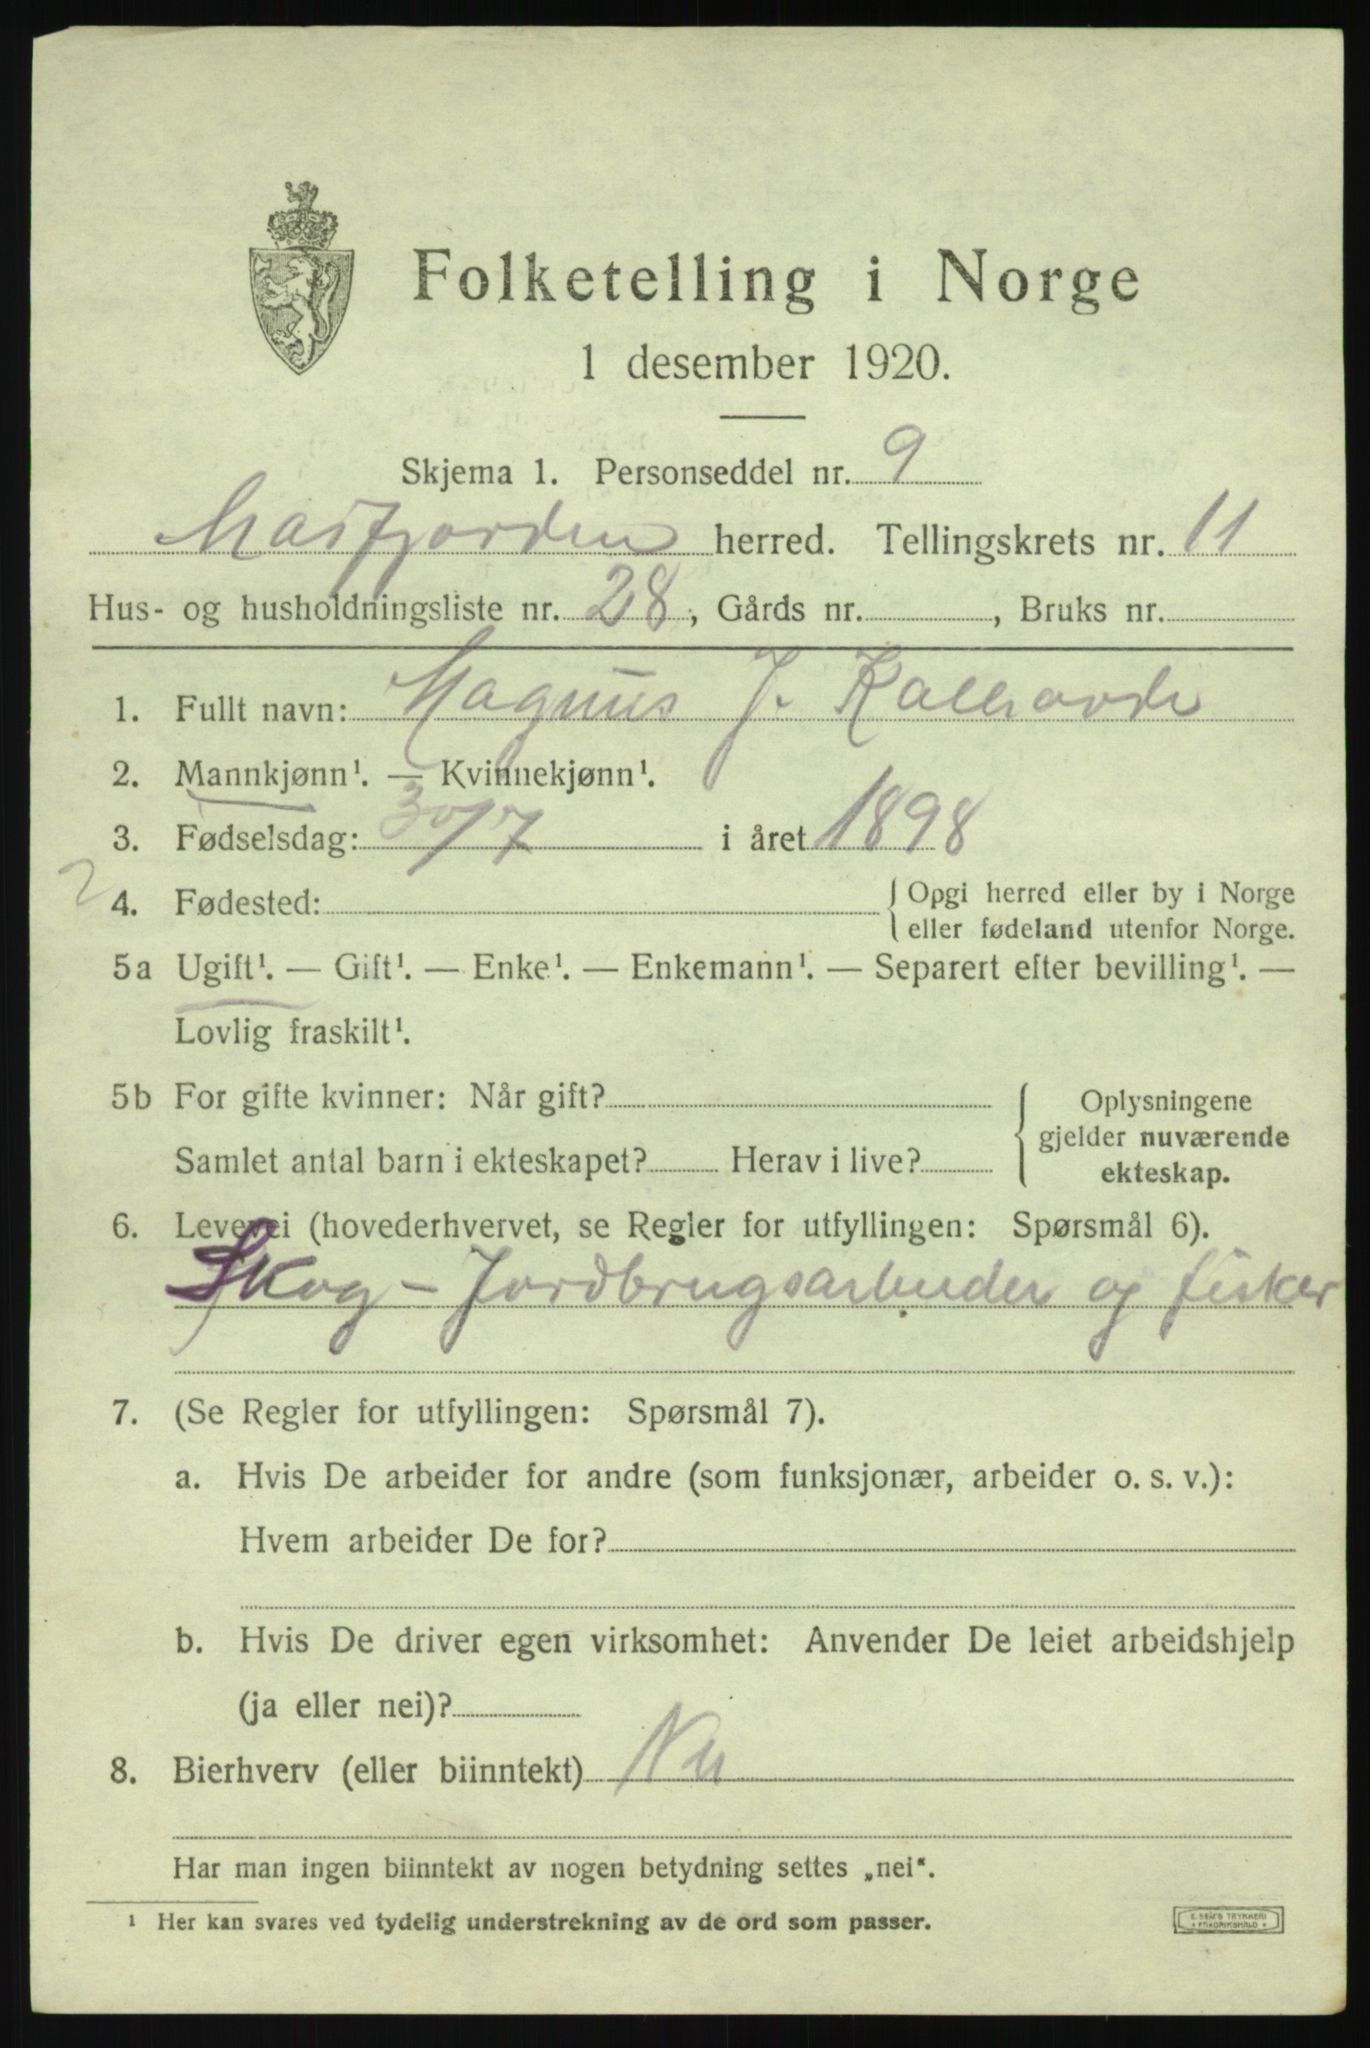 Folketelling i Norge
1 desember 1920.
Skjema 1. Personseddel nr. 9
Masfjorden herred. Tellingskrets nr. 11
Hus- og husholdningsliste nr. 28, Gårds nr. , Bruks nr.
1. Fullt navn: Magnus J. Kalhovde
2. Mannkjønn¹. — Kvinnekjønn¹.
3. Fødselsdag: 30/7 i året 1898
2
4. Fødested: { Opgi herred eller by i Norge
eller fødeland utenfor Norge.
5a Ugift¹. — Gift¹. — Enke¹. — Enkemann¹. — Separert efter bevilling¹. —
Lovlig fraskilt¹.
5b For gifte kvinner: Når gift? { Oplysningene
gjelder nuværende
Samlet antal barn i ekteskapet? Herav i live?
ekteskap.
6. Levevei (hovederhvervet, se Regler for utfyllingen: Spørsmål 6).
Skog - Jordbrugsarbeider og fisker
7. (Se Regler for utfyllingen: Spørsmål 7).
a. Hvis De arbeider for andre (som funksjonær, arbeider o. s. v.):
Hvem arbeider De for?
b. Hvis De driver egen virksomhet: Anvender De leiet arbeidshjelp
(ja eller nei)?
8. Bierhverv (eller biinntekt) Nei
Har man ingen biinntekt av nogen betydning settes „nei“.
¹ Her kan svares ved tydelig understrekning av de ord som passer.
E. SEM'S TRYKKERI
* FREDRIKSHALD *